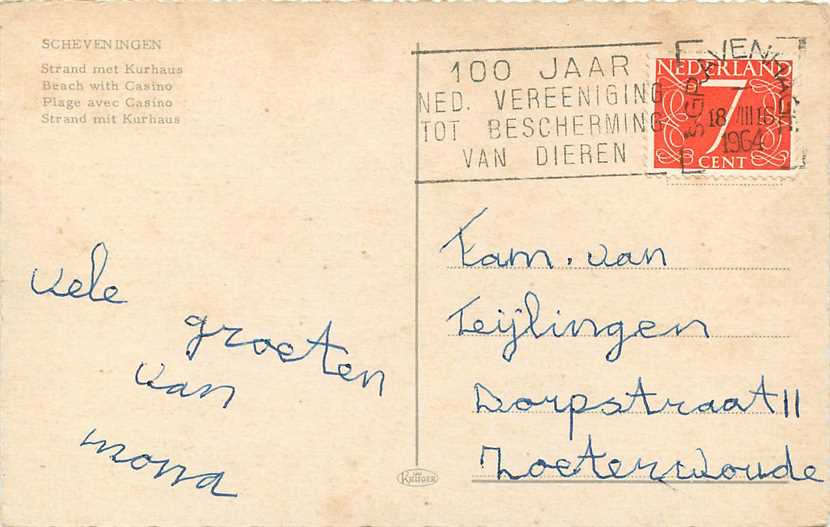 SCHEVENINGEN
Strand met Kurhaus
Beach with Casino
Plage avec Casino
Strand mit Kurhaus
100 JAAR
NED. VEREENIGING
TOT BESCHERMING
VAN DIEREN
'S-GRAVENHAGE
18 VIII 18
1964
NEDERLAND
7
CENT
vele
groeten
van
Fam. van
Teijlingen
Dorpstraat 11
Zoeterwoude
KRÜGER